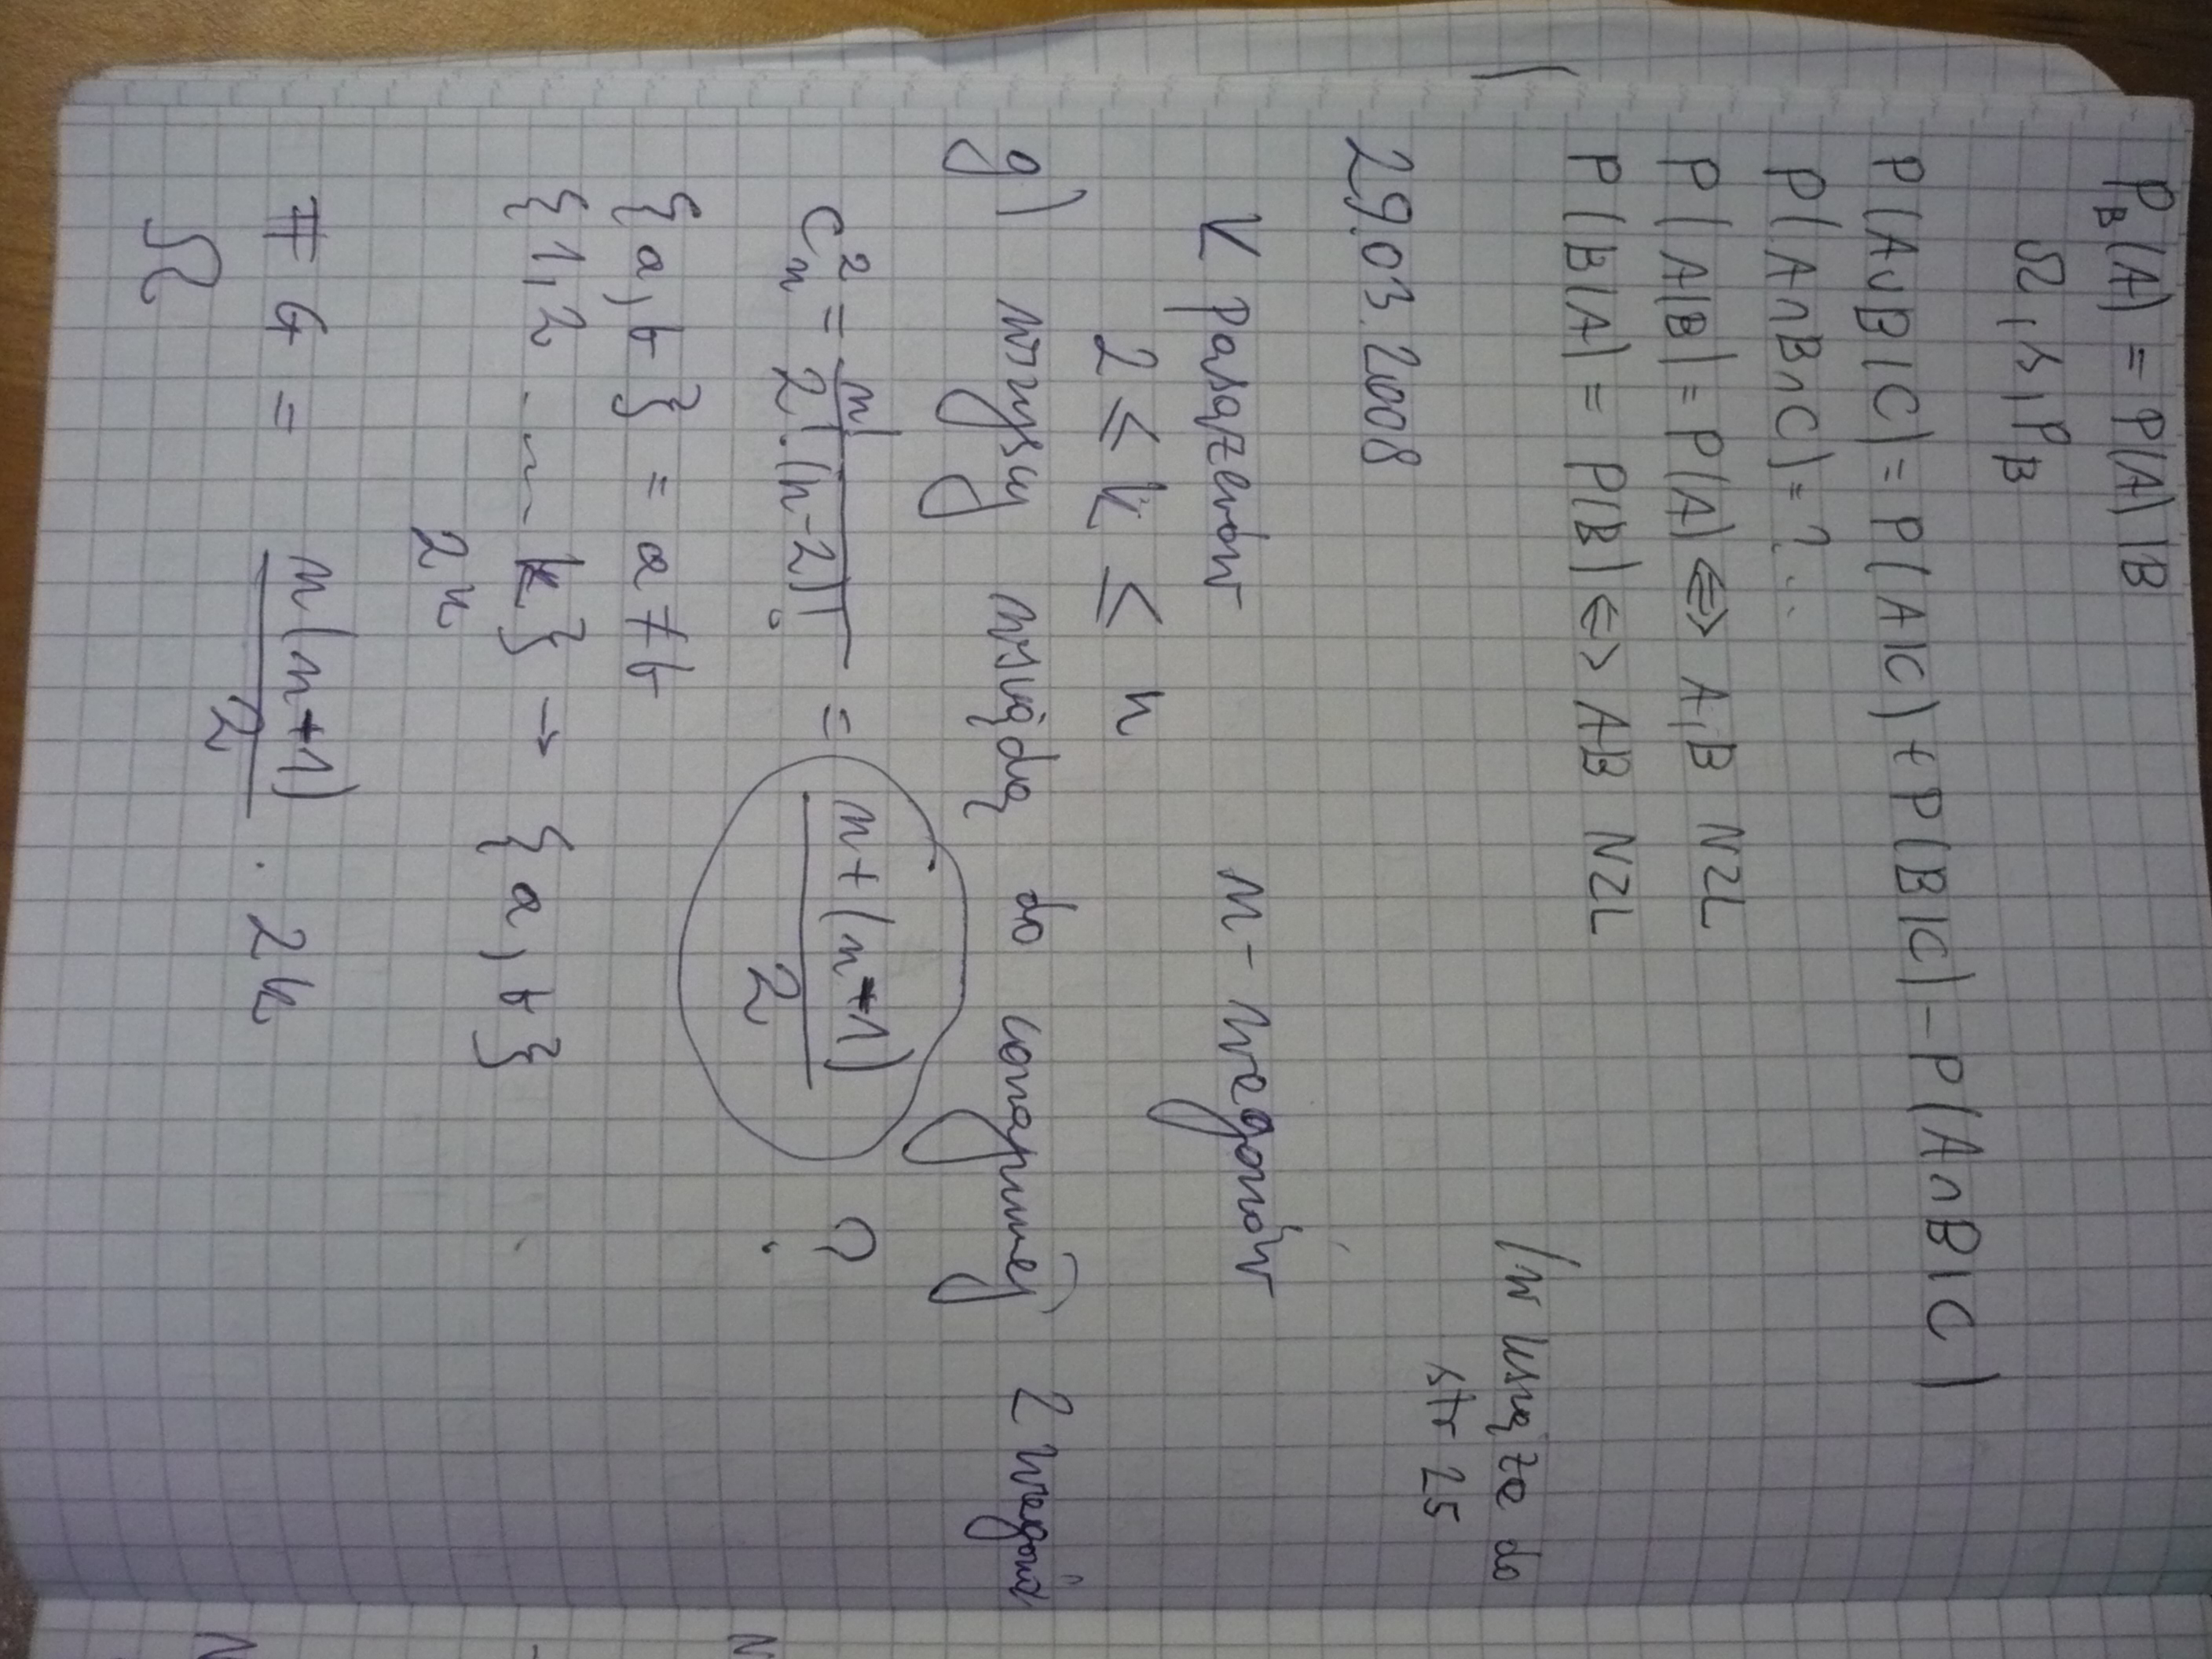 P_B(A) = P(A)|B
Ω, 𝒮, P_B
P(A∪B|C) = P(A|C) + P(B|C) - P(A∩B|C)
P(A∩B∩C) = ? ..
P(A|B) = P(A) ⇔ A, B NZL
P(B|A) = P(B) ⇔ AB NZL
/w książce do
str 25
29.03.2008
k pasażerów n - wagonów
2 ≤ k ≤ n
g) wszyscy wsiądą do conajmniej 2 wagonów
C_n^2 = n! / 2!·(n-2)! = n+(n-1) / 2 ?
{a, b} = a ≠ b
{1, 2 ... k} → {a, b}
2^k
# G = n(n-1) / 2 · 2^k
Ω